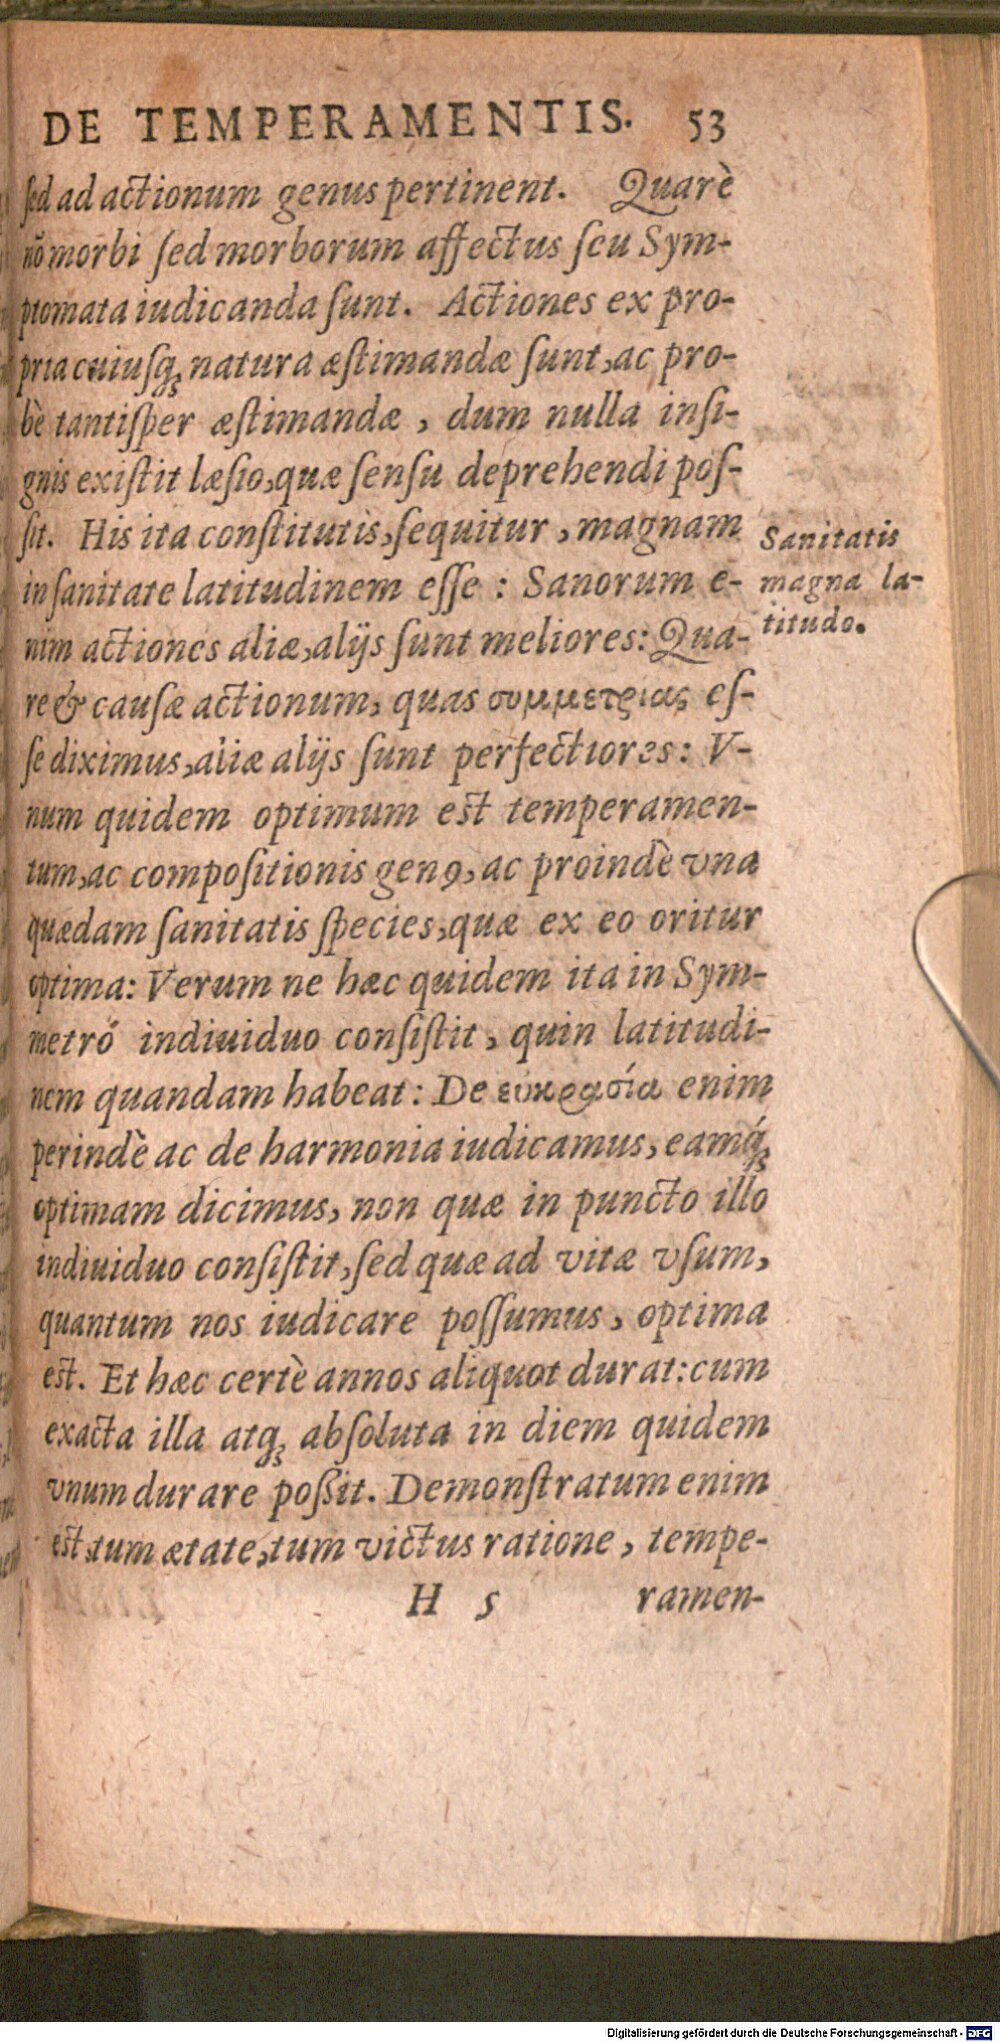 DE TEMPERAMENTIS. 53
ſed ad actionum genus pertinent. Quarè
nō morbi ſed morborum affectus ſeu Sym-
ptomata iudicanda ſunt. Actiones ex pro-
pria cuiuſq; natura æſtimandæ ſunt, ac pro-
bè tantiſper æſtimandæ, dum nulla inſi-
gnis exiſtit læſio, quæ ſenſu deprehendi poſ-
ſit. His ita conſtitutis, ſequitur, magnam
in ſanitate latitudinem eſſe: Sanorum e-
nim actiones aliæ, alijs ſunt meliores: Qua-
re & cauſæ actionum, quas συμμετριας eſ-
ſe diximus, aliæ alijs ſunt perfectiores: V-
num quidem optimum est temperamen-
tum, ac compoſitionis genꝰ, ac proindè vna
quædam ſanitatis ſpecies, quæ ex eo oritur
optima: Verum ne hæc quidem ita in Sym-
metró indiuiduo conſiſtit, quin latitudi-
nem quandam habeat: De ευκρασία enim
perindè ac de harmonia iudicamus, eamq́;
optimam dicimus, non quæ in puncto illo
indiuiduo conſiſtit, ſed quæ ad vitæ vſum,
quantum nos iudicare poſſumus, optima
est. Et hæc certè annos aliquot durat: cum
exacta illa atq; abſoluta in diem quidem
vnum durare poßit. Demonſtratum enim
est, tum ætate, tum victus ratione, tempe-
H 5 ramen-
Sanitatis
magna la-
titudo.
Digitalisierung gefördert durch die Deutsche Forschungsgemeinschaft - DFG